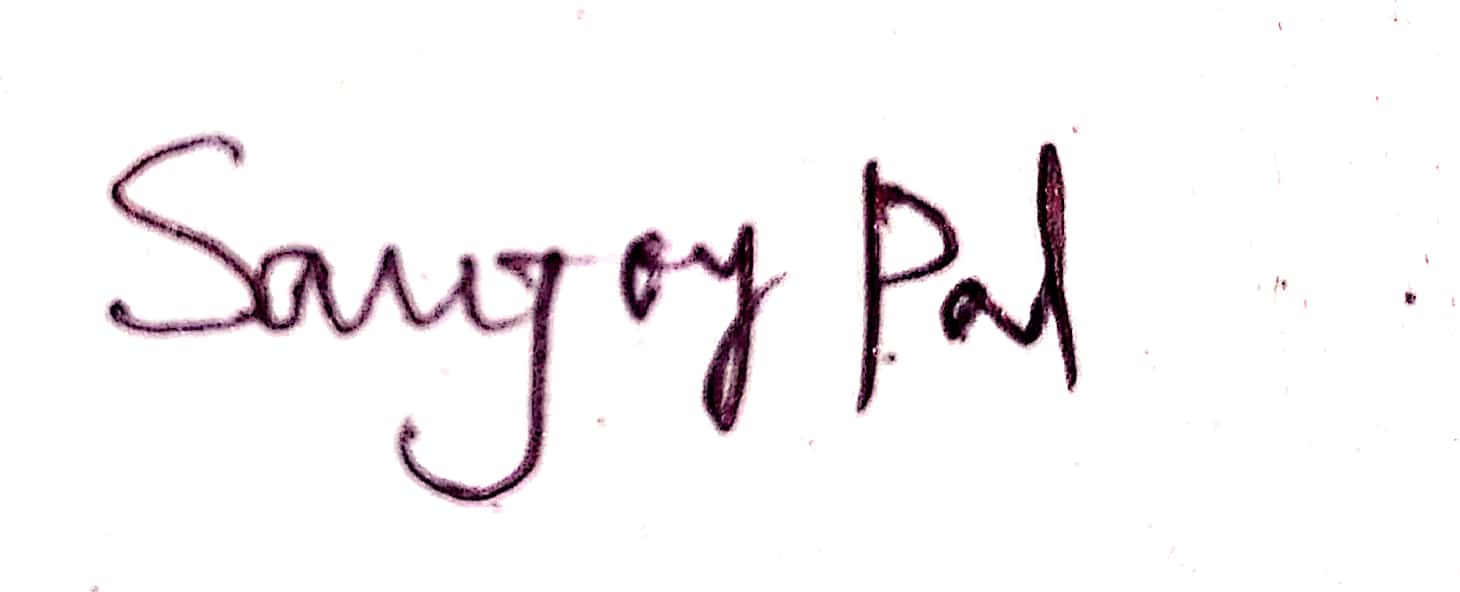 Sanjoy Pal